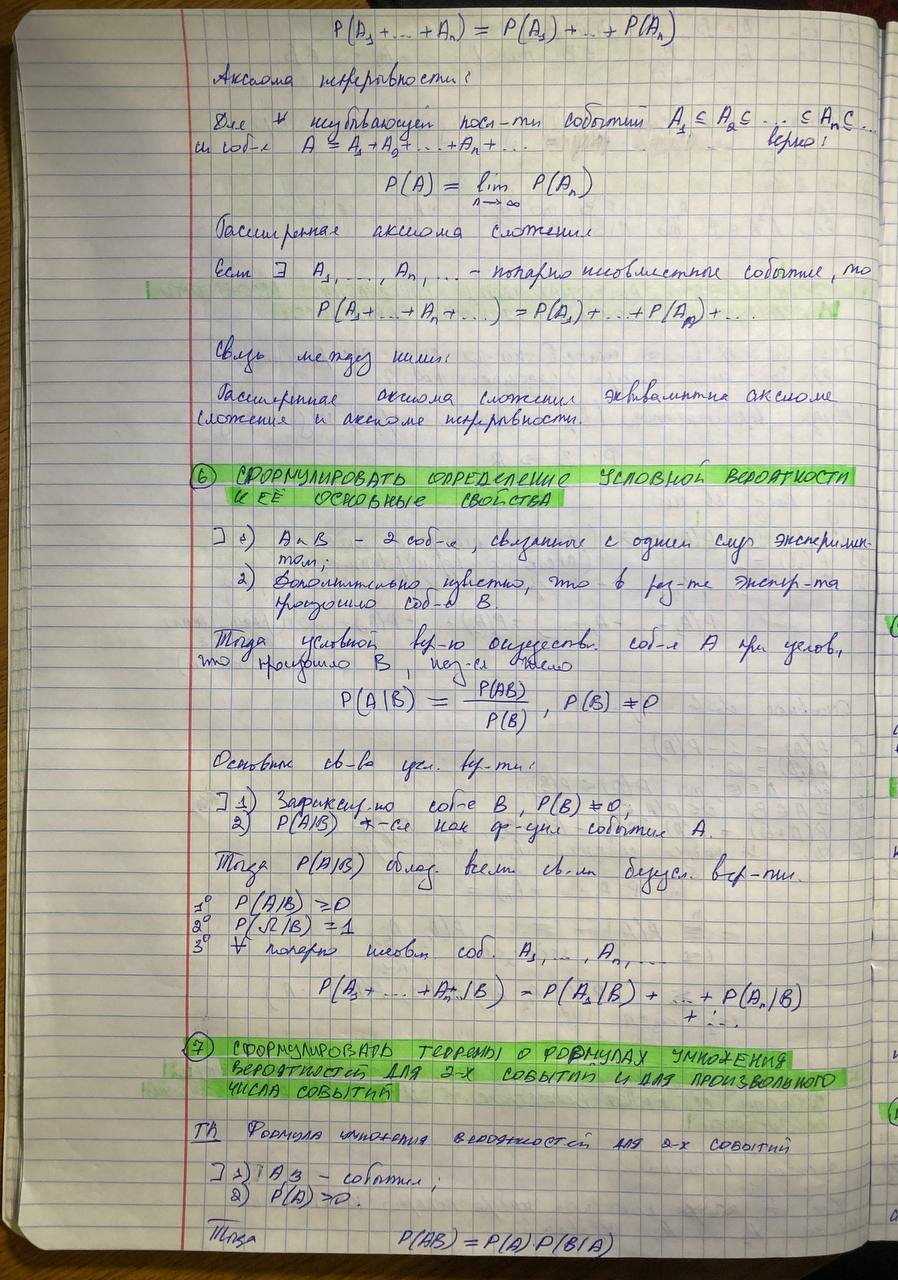 P(A₁ + ... + Aₙ) = P(A₁) + ... + P(Aₙ)
Аксиома непрерывности:
Для ∀ неубывающей посл-ти событий A₁ ⊆ A₂ ⊆ ... ⊆ Aₙ ⊆ ...
и соб-я A = A₁ + A₂ + ... + Aₙ + ... верно:
P(A) = lim P(Aₙ)
n→∞
Расширенная аксиома сложения
Если ∃ A₁, ..., Aₙ, ... - попарно несовместные событие, то
P(A₁ + ... + Aₙ + ...) = P(A₁) + ... + P(Aₙ) + ...
Связь между ними:
Расширенная аксиома сложения эквивалентна аксиоме
сложения и аксиоме непрерывности.
6 СФОРМУЛИРОВАТЬ ОПРЕДЕЛЕНИЕ УСЛОВНОЙ ВЕРОЯТНОСТИ
И ЕЁ ОСНОВНЫЕ СВОЙСТВА
] 1) A и B - 2 соб-я, связанные с одним случ эксперимен-
том;
2) Дополнительно известно, что в рез-те экспер-та
произошло соб-е B.
Тогда условной вер-ю осуществ. соб-я A при услов,
что произошло B, наз-ся число
P(A|B) = P(AB) / P(B), P(B) ≠ 0
Основные св-ва усл. вер-ти:
] 1) Зафиксир-но соб-е B, P(B) ≠ 0;
2) P(A|B) *-ся как ф-ция события A.
Тогда P(A|B) облад. всеми св-ми безусл. вер-ти.
1° P(A|B) ≥ 0
2° P(Ω|B) = 1
3° ∀ попарно несовм соб. A₁, ..., Aₙ, ...
P(A₁ + ... + Aₙ + ...|B) = P(A₁|B) + ... + P(Aₙ|B)
+ ...
7 СФОРМУЛИРОВАТЬ ТЕОРЕМЫ О ФОРМУЛАХ УМНОЖЕНИЯ
ВЕРОЯТНОСТЕЙ ДЛЯ 2-Х СОБЫТИЙ И ДЛЯ ПРОИЗВОЛЬНОГО
ЧИСЛА СОБЫТИЙ
Th Формула умножения вероятностей для 2-х событий
] 1) A, B - события;
2) P(A) > 0.
Тогда P(AB) = P(A) P(B|A)